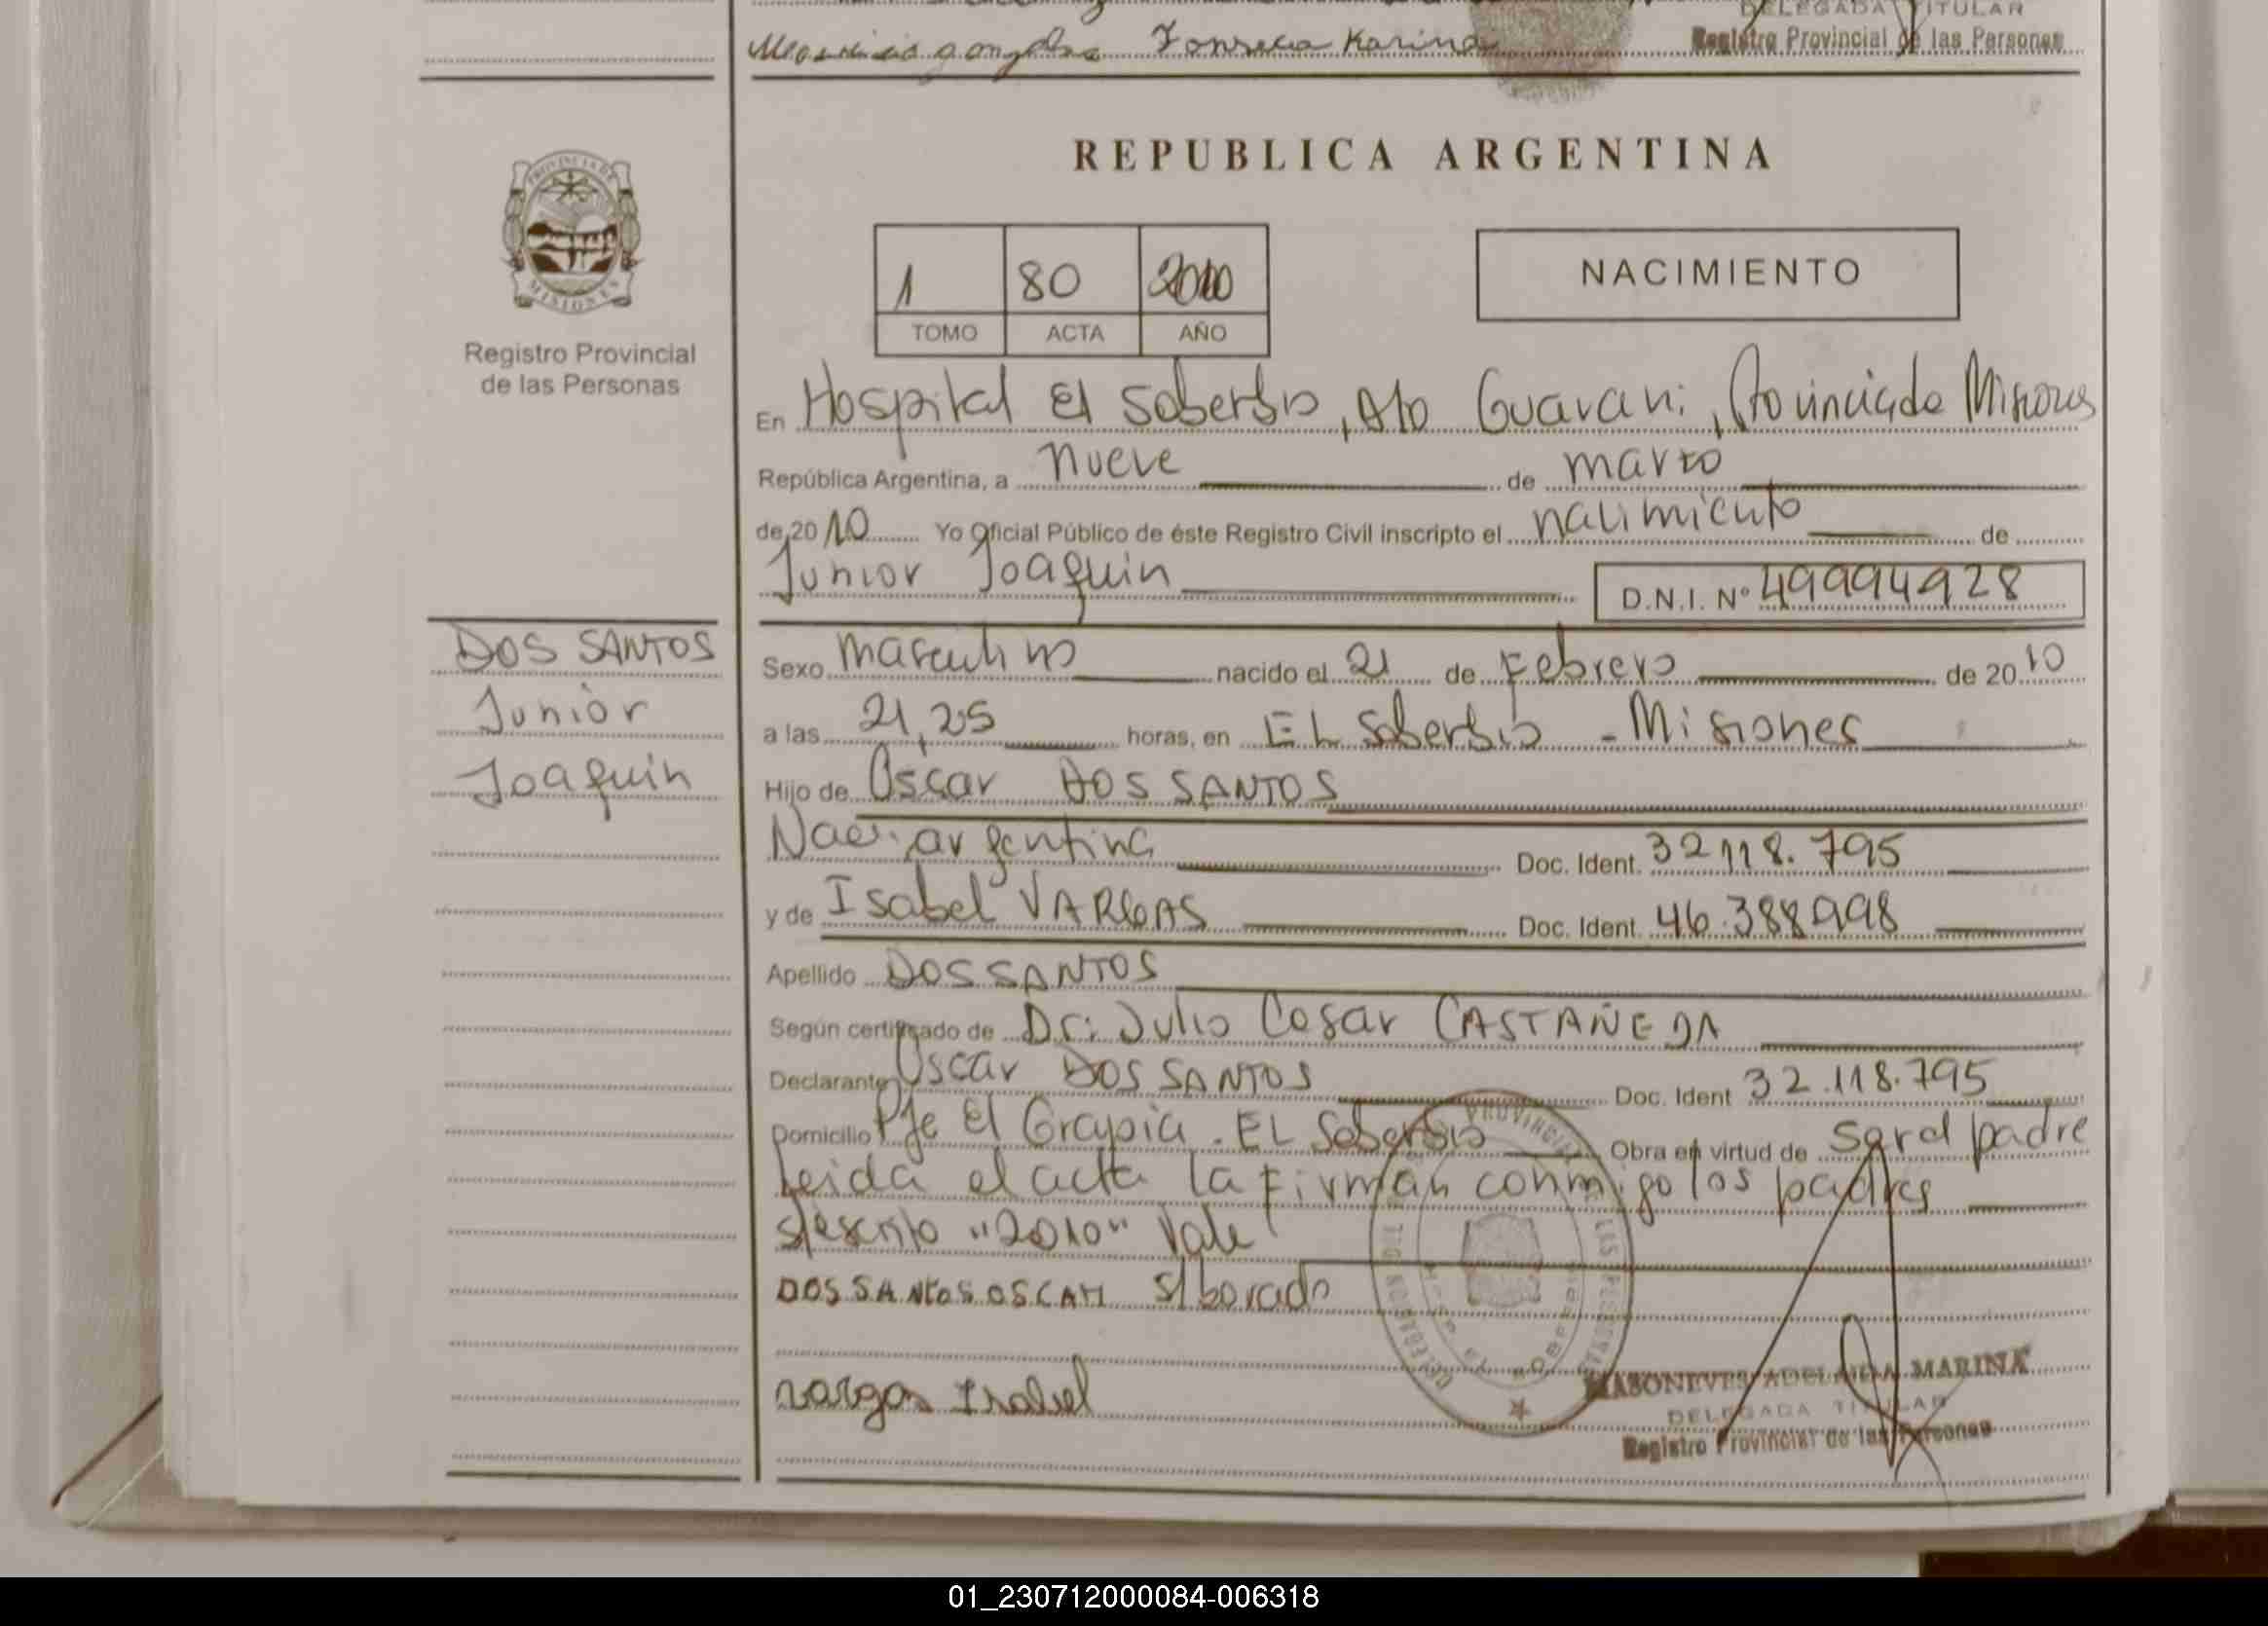 DELEGADA TITULAR
Gonzalez Fonseca Karina
Registro Provincial de las Personas
PROVINCIA DE
MISIONES
Registro Provincial
de las Personas
REPUBLICA ARGENTINA
1 80 2010
TOMO ACTA AÑO
NACIMIENTO
En Hospital El Soberbio, Dto Guarani, Provincia de Misiones
República Argentina, a nueve de marzo
de 2010 Yo Oficial Público de éste Registro Civil inscripto el nacimiento de
Junior Joaquin D.N.I. Nº 49994928
DOS SANTOS
Junior
Joaquin
Sexo masculino nacido el 21 de Febrero de 2010
a las 21,25 horas, en EL Soberbio - Misiones
Hijo de Oscar DOS SANTOS
Nac. argentina Doc. Ident. 32118.795
y de Isabel VARGAS Doc. Ident. 46.388998
Apellido DOS SANTOS
Según certificado de Dr: Julio Cesar CASTAÑEDA
Declarante Oscar DOS SANTOS Doc. Ident 32.118.795
Domicilio Pje El Grapia. EL Soberbio Obra en virtud de ser el padre
Leida el acta la Firman conmigo los padres
s/escrito "2010" Vale
DOS SANtOS OSCAR S/borrado
vargas Isabel
MASONEVES ADELAIDA MARINA
DELEGADA TITULAR
Registro Provincial de las Personas
01_230712000084-006318